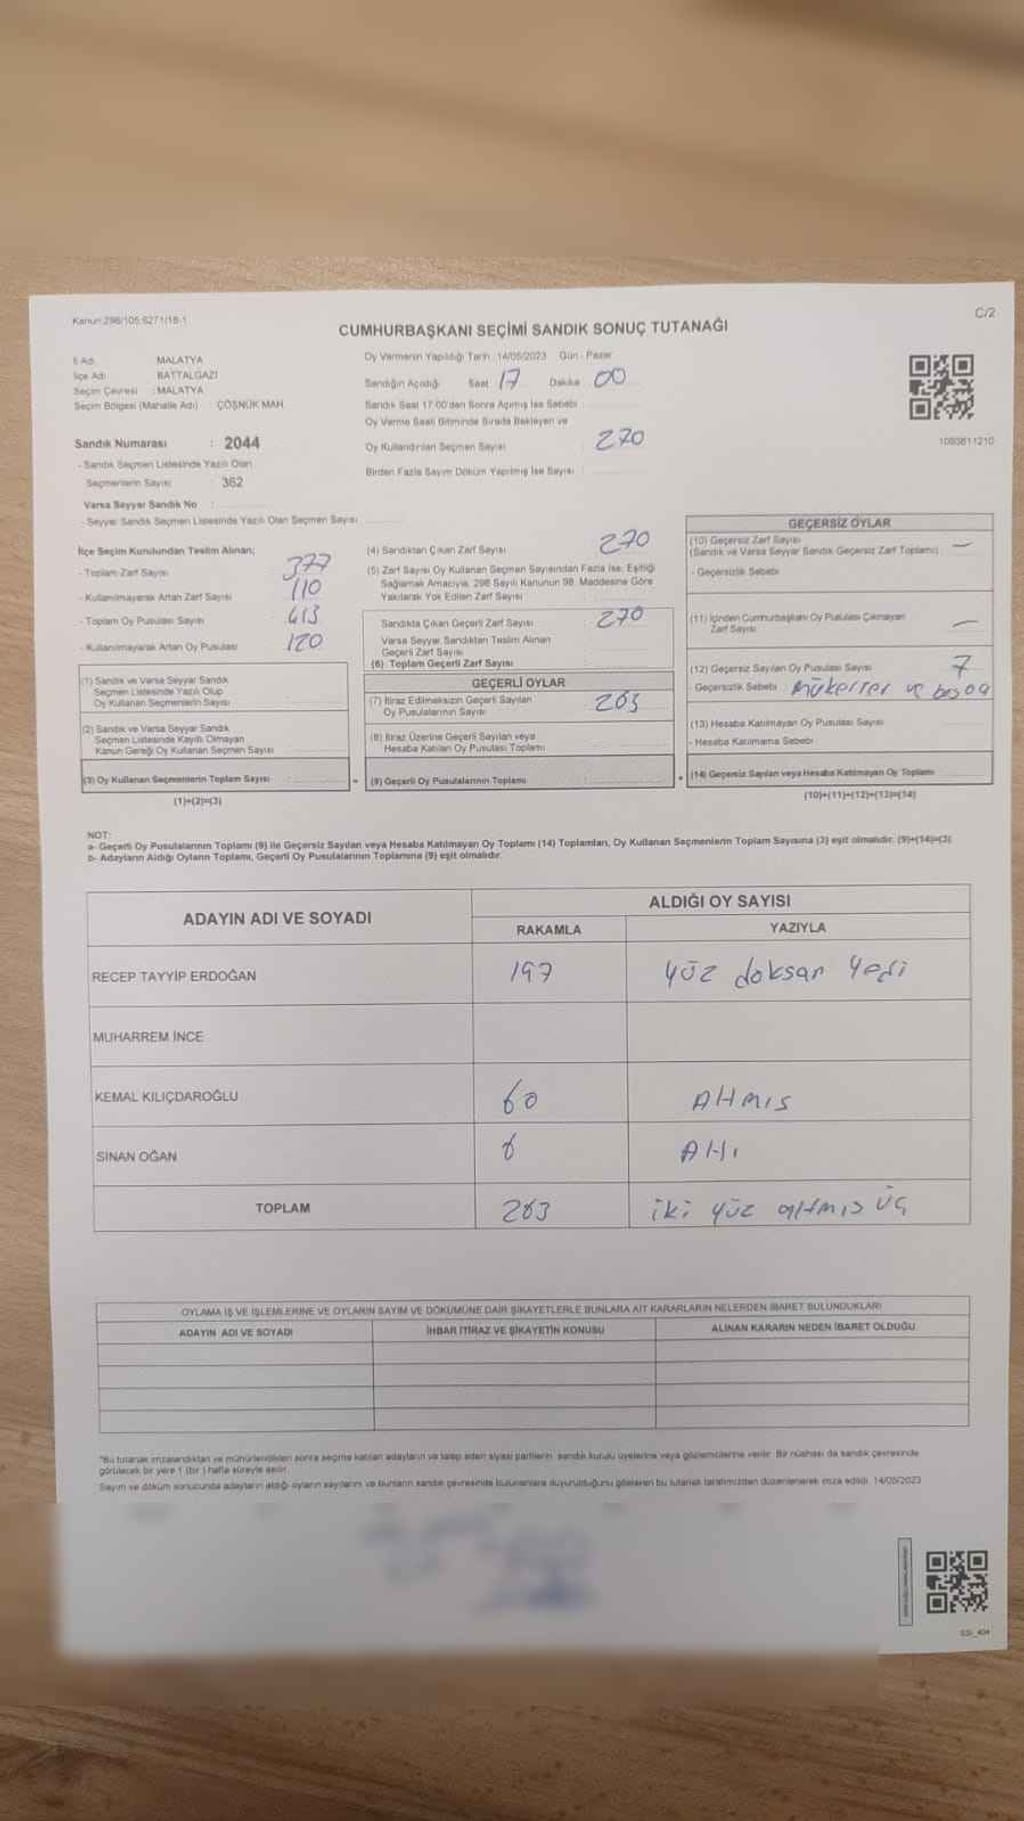 Kanun:298/105.6271/18-1
C/2
CUMHURBAŞKANI SEÇİMİ SANDIK SONUÇ TUTANAĞI
İl Adı : MALATYA
İlçe Adı : BATTALGAZİ
Seçim Çevresi : MALATYA
Seçim Bölgesi (Mahalle Adı) : ÇÖŞNÜK MAH.
Sandık Numarası : 2044
- Sandık Seçmen Listesinde Yazılı Olan
Seçmenlerin Sayısı : 362
Varsa Seyyar Sandık No :
- Seyyar Sandık Seçmen Listesinde Yazılı Olan Seçmen Sayısı
Oy Vermenin Yapıldığı Tarih : 14/05/2023 Gün : Pazar
Sandığın Açıldığı Saat 17 Dakika 00
Sandık Saat 17:00'den Sonra Açılmış İse Sebebi
Oy Verme Saati Bitiminde Sırada Bekleyen ve
Oy Kullandırılan Seçmen Sayısı 270
Birden Fazla Sayım Döküm Yapılmış İse Sayısı
1093811210
İlçe Seçim Kurulundan Teslim Alınan;
- Toplam Zarf Sayısı 377
- Kullanılmayarak Artan Zarf Sayısı 110
- Toplam Oy Pusulası Sayısı 413
- Kullanılmayarak Artan Oy Pusulası 120
(1) Sandık ve Varsa Seyyar Sandık
Seçmen Listesinde Yazılı Olup
Oy Kullanan Seçmenlerin Sayısı
(2) Sandık ve Varsa Seyyar Sandık
Seçmen Listesinde Kayıtlı Olmayan
Kanun Gereği Oy Kullanan Seçmen Sayısı
(3) Oy Kullanan Seçmenlerin Toplam Sayısı
(1)+(2)=(3)
(4) Sandıktan Çıkan Zarf Sayısı 270
(5) Zarf Sayısı Oy Kullanan Seçmen Sayısından Fazla İse; Eşitliği
Sağlamak Amacıyla, 298 Sayılı Kanunun 98. Maddesine Göre
Yakılarak Yok Edilen Zarf Sayısı
Sandıkta Çıkan Geçerli Zarf Sayısı 270
Varsa Seyyar Sandıktan Teslim Alınan
Geçerli Zarf Sayısı
(6) Toplam Geçerli Zarf Sayısı
GEÇERLİ OYLAR
(7) İtiraz Edilmeksizin Geçerli Sayılan
Oy Pusulalarının Sayısı 263
(8) İtiraz Üzerine Geçerli Sayılan veya
Hesaba Katılan Oy Pusulası Toplamı
(9) Geçerli Oy Pusulalarının Toplamı
GEÇERSİZ OYLAR
(10) Geçersiz Zarf Sayısı
(Sandık ve Varsa Seyyar Sandık Geçersiz Zarf Toplamı) —
- Geçersizlik Sebebi
(11) İçinden Cumhurbaşkanı Oy Pusulası Çıkmayan
Zarf Sayısı —
(12) Geçersiz Sayılan Oy Pusulası Sayısı 7
Geçersizlik Sebebi : mükerrer ve
(13) Hesaba Katılmayan Oy Pusulası Sayısı
- Hesaba Katılmama Sebebi
(14) Geçersiz Sayılan veya Hesaba Katılmayan Oy Toplamı
(10)+(11)+(12)+(13)=(14)
NOT:
a- Geçerli Oy Pusulalarının Toplamı (9) ile Geçersiz Sayılan veya Hesaba Katılmayan Oy Toplamı (14) Toplamları, Oy Kullanan Seçmenlerin Toplam Sayısına (3) eşit olmalıdır. (9)+(14)=(3)
b- Adayların Aldığı Oyların Toplamı, Geçerli Oy Pusulalarının Toplamına (9) eşit olmalıdır.
ADAYIN ADI VE SOYADI
ALDIĞI OY SAYISI
RAKAMLA YAZIYLA
RECEP TAYYİP ERDOĞAN 197 yüz doksan yedi
MUHARREM İNCE
KEMAL KILIÇDAROĞLU 60 Altmış
SİNAN OĞAN 6 Altı
TOPLAM 263 iki yüz altmış üç
OYLAMA İŞ VE İŞLEMLERİNE VE OYLARIN SAYIM VE DÖKÜMÜNE DAİR ŞİKAYETLERLE BUNLARA AİT KARARLARIN NELERDEN İBARET BULUNDUKLARI
ADAYIN ADI VE SOYADI İHBAR İTİRAZ VE ŞİKAYETİN KONUSU ALINAN KARARIN NEDEN İBARET OLDUĞU
"Bu tutanak imzalandıktan ve mühürlendikten sonra seçime katılan adayların ve talep eden siyasi partilerin sandık kurulu üyelerine veya gözlemcilerine verilir. Bir nüshası da sandık çevresinde
görülecek bir yere 1 (bir ) hafta süreyle asılır.
Sayım ve döküm sonucunda adayların aldığı oyların sayılarını ve bunların sandık çevresinde bulunanlara duyurulduğunu gösteren bu tutanak tarafımızdan düzenlenerek imza edildi. 14/05/2023